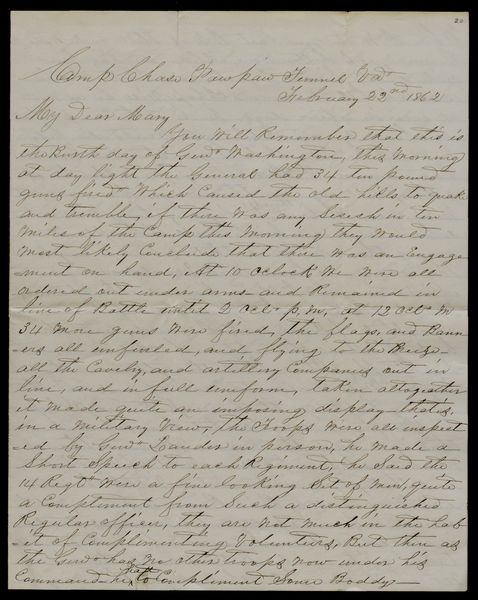 20
Camp Chase Pawpaw Tunnel Va
February 22nd 1862
My Dear Mary
You Will Remember that this is
the Birth day of Genl Washington, this Morning
at day light the General had 34 ten pound
guns fired Which Caused the old hills to quake
and tremble, if there Was any Sesesh in ten
Miles of the Camp this Morning they Would
Most likely Conclude that there was an Engage
-ment on hand, At 10 oclock We Were all
ordered out under arms and Remained in
line of Battle until 2 Oclo p.m. at 12 Oclo M
34 More guns Were fired, the flags, and Bann
-ers all unfurled, and flying to the Breize
all the Cavelry, and artillery Companies out in
line, and in full uniform, taken altogeather
it made quite an imposing display that is
in a military View, the Troops Were all inspect
-ed by Genl Lander in person, he made a
Short Speech to each Regiment, he Said the
14 Regt Were a fine looking Set of Men, quite
a Compliment from Such a distinguished
Regular officer, they are Not Much in the hab
-it of Complimenting Volunteers, But then as
the Genl has No other troops Now under his
Command he has to Compliment Some Boddy